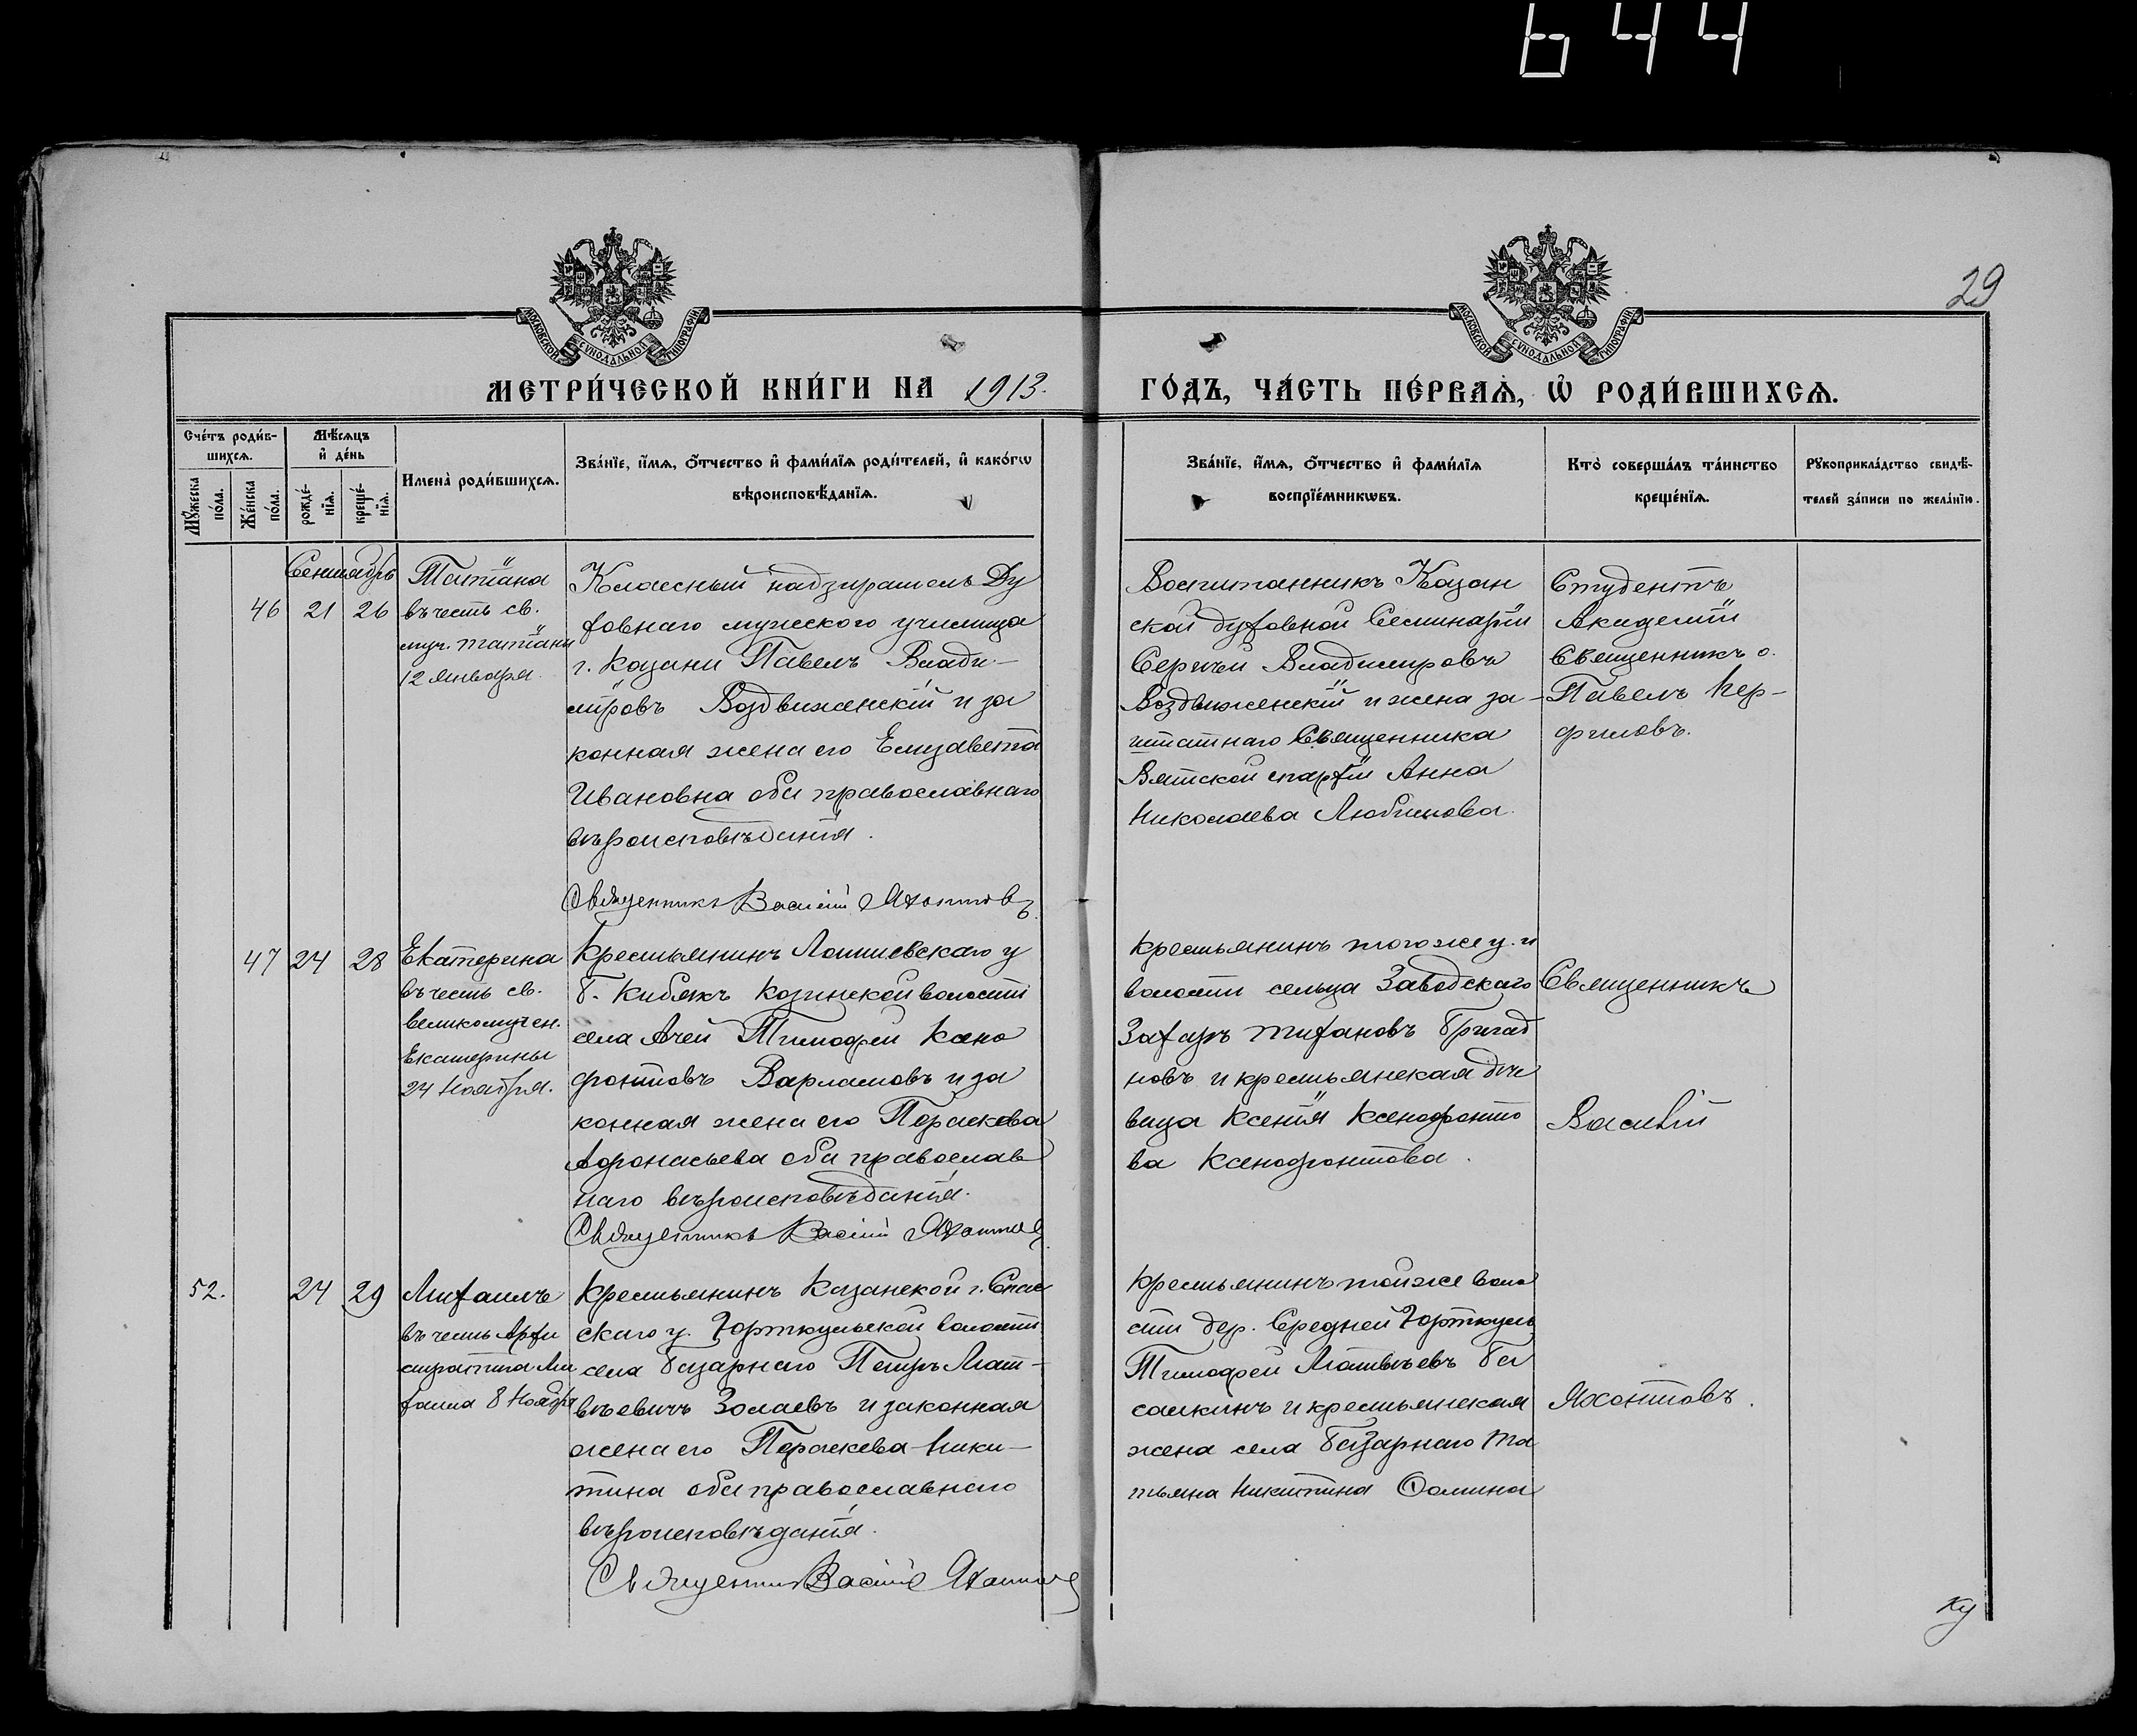 644
29
МОСКОВСКОЙ СѴНОДАЛЬНОЙ ТИПОГРАФІИ
МОСКОВСКОЙ СѴНОДАЛЬНОЙ ТИПОГРАФІИ
МЕТРИ́ЧЕСКОЙ КНИ́ГИ НА 1913. ГО́ДЪ, ЧА́СТЬ ПЕ́РВАѦ, Ѡ҆ РОДИ́ВШИХСѦ.
Сче́тъ роди́в-
шихсѧ.
Мꙋ́жеска по́ла.
Же́нска по́ла.
Мѣ́сѧцъ
и҆ де́нь
рожде́-
нїѧ.
креще́-
нїѧ.
Имена̀ роди́вшихсѧ.
Зва́нїе, и҆́мѧ, ѻ҆́тчество и҆ фами́лїѧ роди́телей, и҆ како́гѡ
вѣроисповѣ́данїѧ.
Зва́нїе, и҆́мѧ, ѻ҆́тчество и҆ фами́лїѧ
воспрїе́мникѡвъ.
Кто̀ соверша́лъ та́инство
креще́нїѧ.
Рꙋкоприкла́дство свидѣ́-
телей за́писи по жела́нїю.
Сентябрь
46 21 26
Татіана
въ честь св.
муч. Татіаны
12 Января.
Классный надзиратель Ду
ховнаго мужеского училища
г. Казани Павелъ Влади-
міровъ Воздвиженскій и за
конная жена его Елизавета
Ивановна оба православнаго
вѣроисповѣданія.
Священникъ Василій Яхонтовъ.
Воспитанникъ Казан
ской духовной Семинаріи
Сергѣй Владиміровъ
Воздвиженскій и жена за-
штатнаго Священника
Вятской епархіи Анна
Николаева Любимова.
Студентъ
Академіи
Священникъ о.
Павелъ Пер-
филовъ.
47 24 28
Екатерина
въ честь св.
великомучен.
Екатерины
24 Ноября.
Крестьянинъ Лаишевскаго у
Б. Кибякъ Козинской волости
села Ачей Тимофей Ксено
фонтовъ Варламовъ и за
конная жена его Параскева
Афонасьева оба православ
наго вѣроисповѣданія.
Священникъ Василій Яхонтовъ
Крестьянинъ того же у. и
волости сельца Заводскаго
Захаръ Тихановъ Бригад
новъ и крестьянская дѣ
вица Ксенія Ксенофонто
ва Ксенофонтова.
Священникъ
Василій
Яхонтовъ.
52. 24 29
Михаилъ
въ честь Архи
стратига Ми
хаила 8 Ноября
Крестьянинъ Казанской г. Спас
скаго у. Юрткульской волости
села Базарнаго Петръ Мат-
вѣевичъ Золаевъ и законная
жена его Параскева Ники-
тина оба православнаго
вѣроисповѣданія.
Священникъ Василій Яхонтовъ
Крестьянинъ той же воло
сти дер. Средней Юрткуль
Тимофей Матвѣевъ Ба
самкинъ и крестьянская
жена села Базарнаго Та
тьяна Никитина Фомина